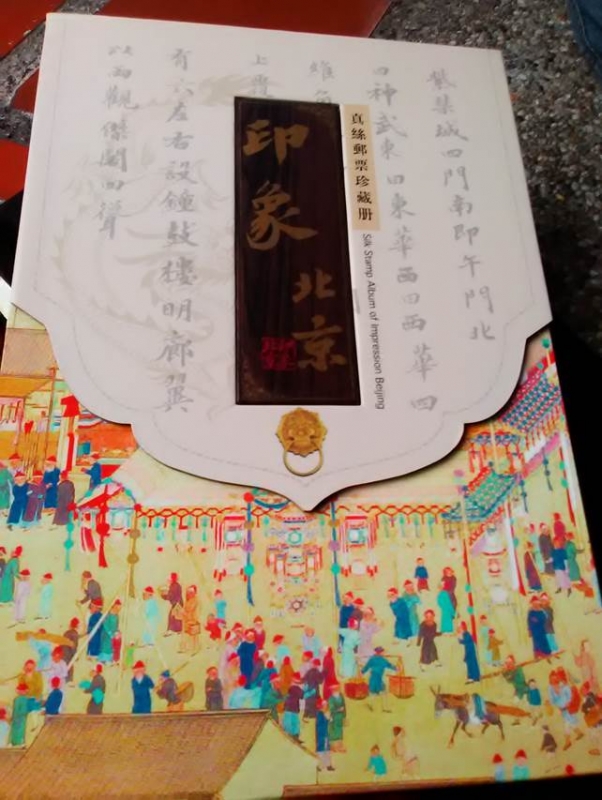 紫禁城四門南即午門北
曰神武東曰東華西曰西華四
真絲郵票珍藏册
Silk Stamp Album of Impression Beijing
印象
北京
上覆
有六左右設鐘鼓樓明廊翼
以兩觀傑閣四聳